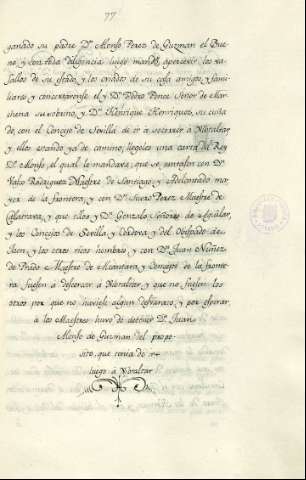 77
ganado su padre Dn. Alonso Perez de Guzman el Bue-
no y con toda diligencia luego mandó apercevir los va-
sallos de su estado, y los criados de su casa amigos, y fami-
liares y concertaronse el y Dn. Pedro Ponce Señor de Mar-
chena su sobrino, y Dn. Henrique Henriquez, su cuña-
do, con el Concejo de Sevilla de ir á socorrer á Gibraltar,
y ellos estando ya de camino, llegoles una carta del Rey
Dn. Alonso, el qual le mandava, que se juntasen con Dn.
Vasco Rodriguez Maestre de Santiago, y Adelantado ma-
yor de la frontera, y con Dn. Suero Perez Maestre de
Calatrava, y que ellos, y Dn. Gonzalo Señor de Aguilar,
y los Concejos de Sevilla y Cordova, y del Obispado de
Jaen, y los otros ricos hombres, y con Dn. Juan Nuñez
de Prado Maestre de Alcantara, y Concejos de la fronte-
ra fuesen á descercar á Gibraltar, y que no fuesen los
otros por que no huviese algun desbarato, y por esperar
á los Maestres huvo de detener Dn. Juan
Alonso de Guzman del propo-
sito, que tenia de ir
luego á Gibraltar